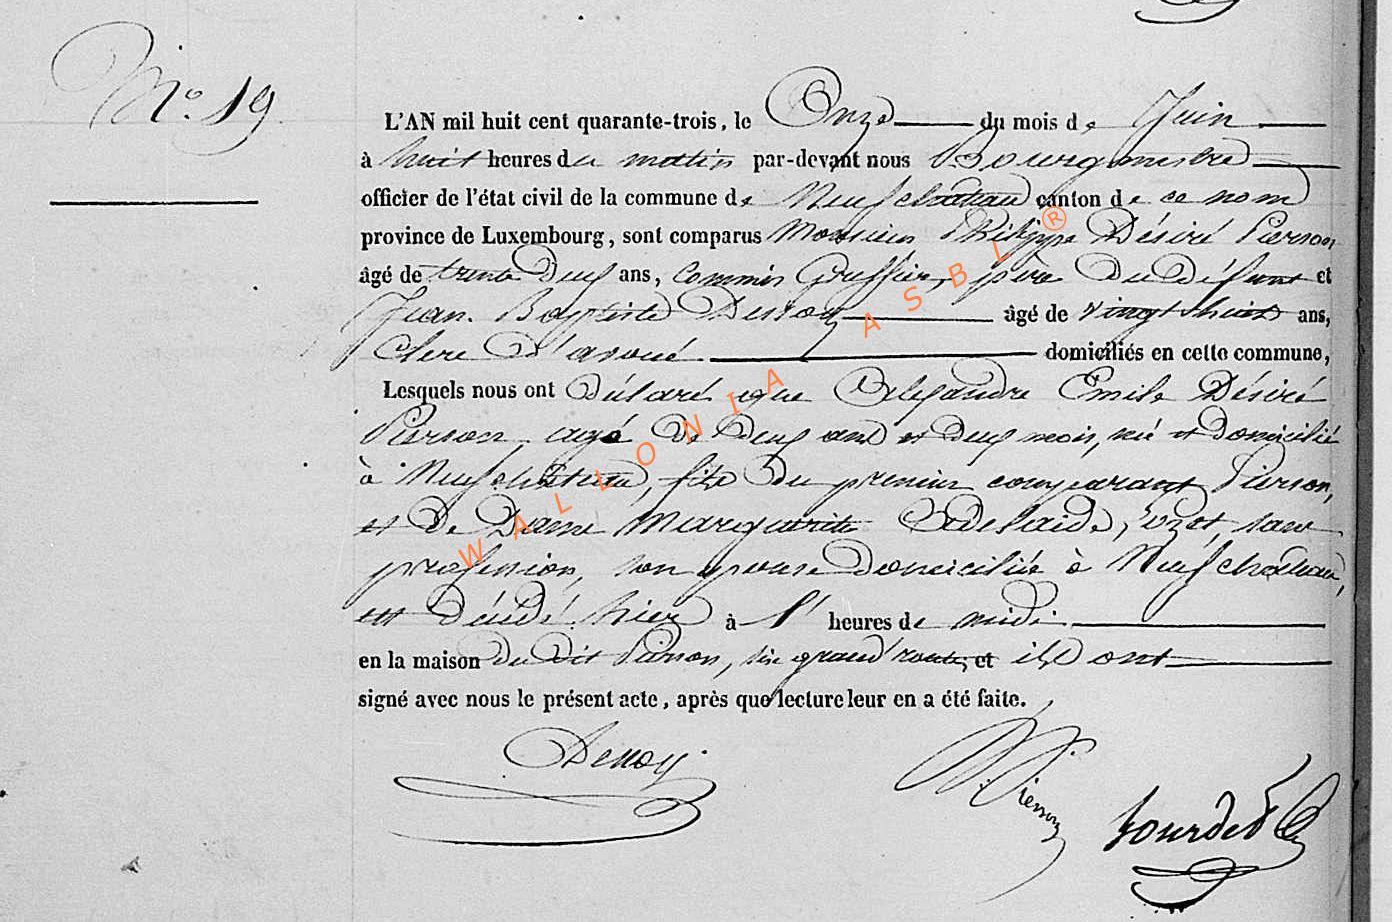 N.° 19
L'AN mil huit cent quarante-trois, le Onze du mois de Juin
à huit heures du matin par-devant nous Bourgmestre
officier de l'état civil de la commune de Neufchateau canton de ce nom
province de Luxembourg, sont comparus Monsieur Philippe Désiré Pierson
âgé de trente deux ans, commis Greffier, père du défunt et
Jean Baptiste Denoy âgé de vingt huit ans,
Clerc d'avoué domiciliés en cette commune,
Lesquels nous ont déclaré que Alexandre Emile Désiré
Pierson, agé de deux ans et deux mois, né et domicilié
à Neufchateau, fils du premier comparant Pierson,
et de Dame Marguerite Adelaide, sans
profession, son epouse domiciliée à Neufchateau,
est décédé hier à heures de midi
en la maison du dit Pierson, sise grand'route, et ils ont
signé avec nous le présent acte, après que lecture leur en a été faite.
Denoy
Pierson
WALLONIA ASBL ®